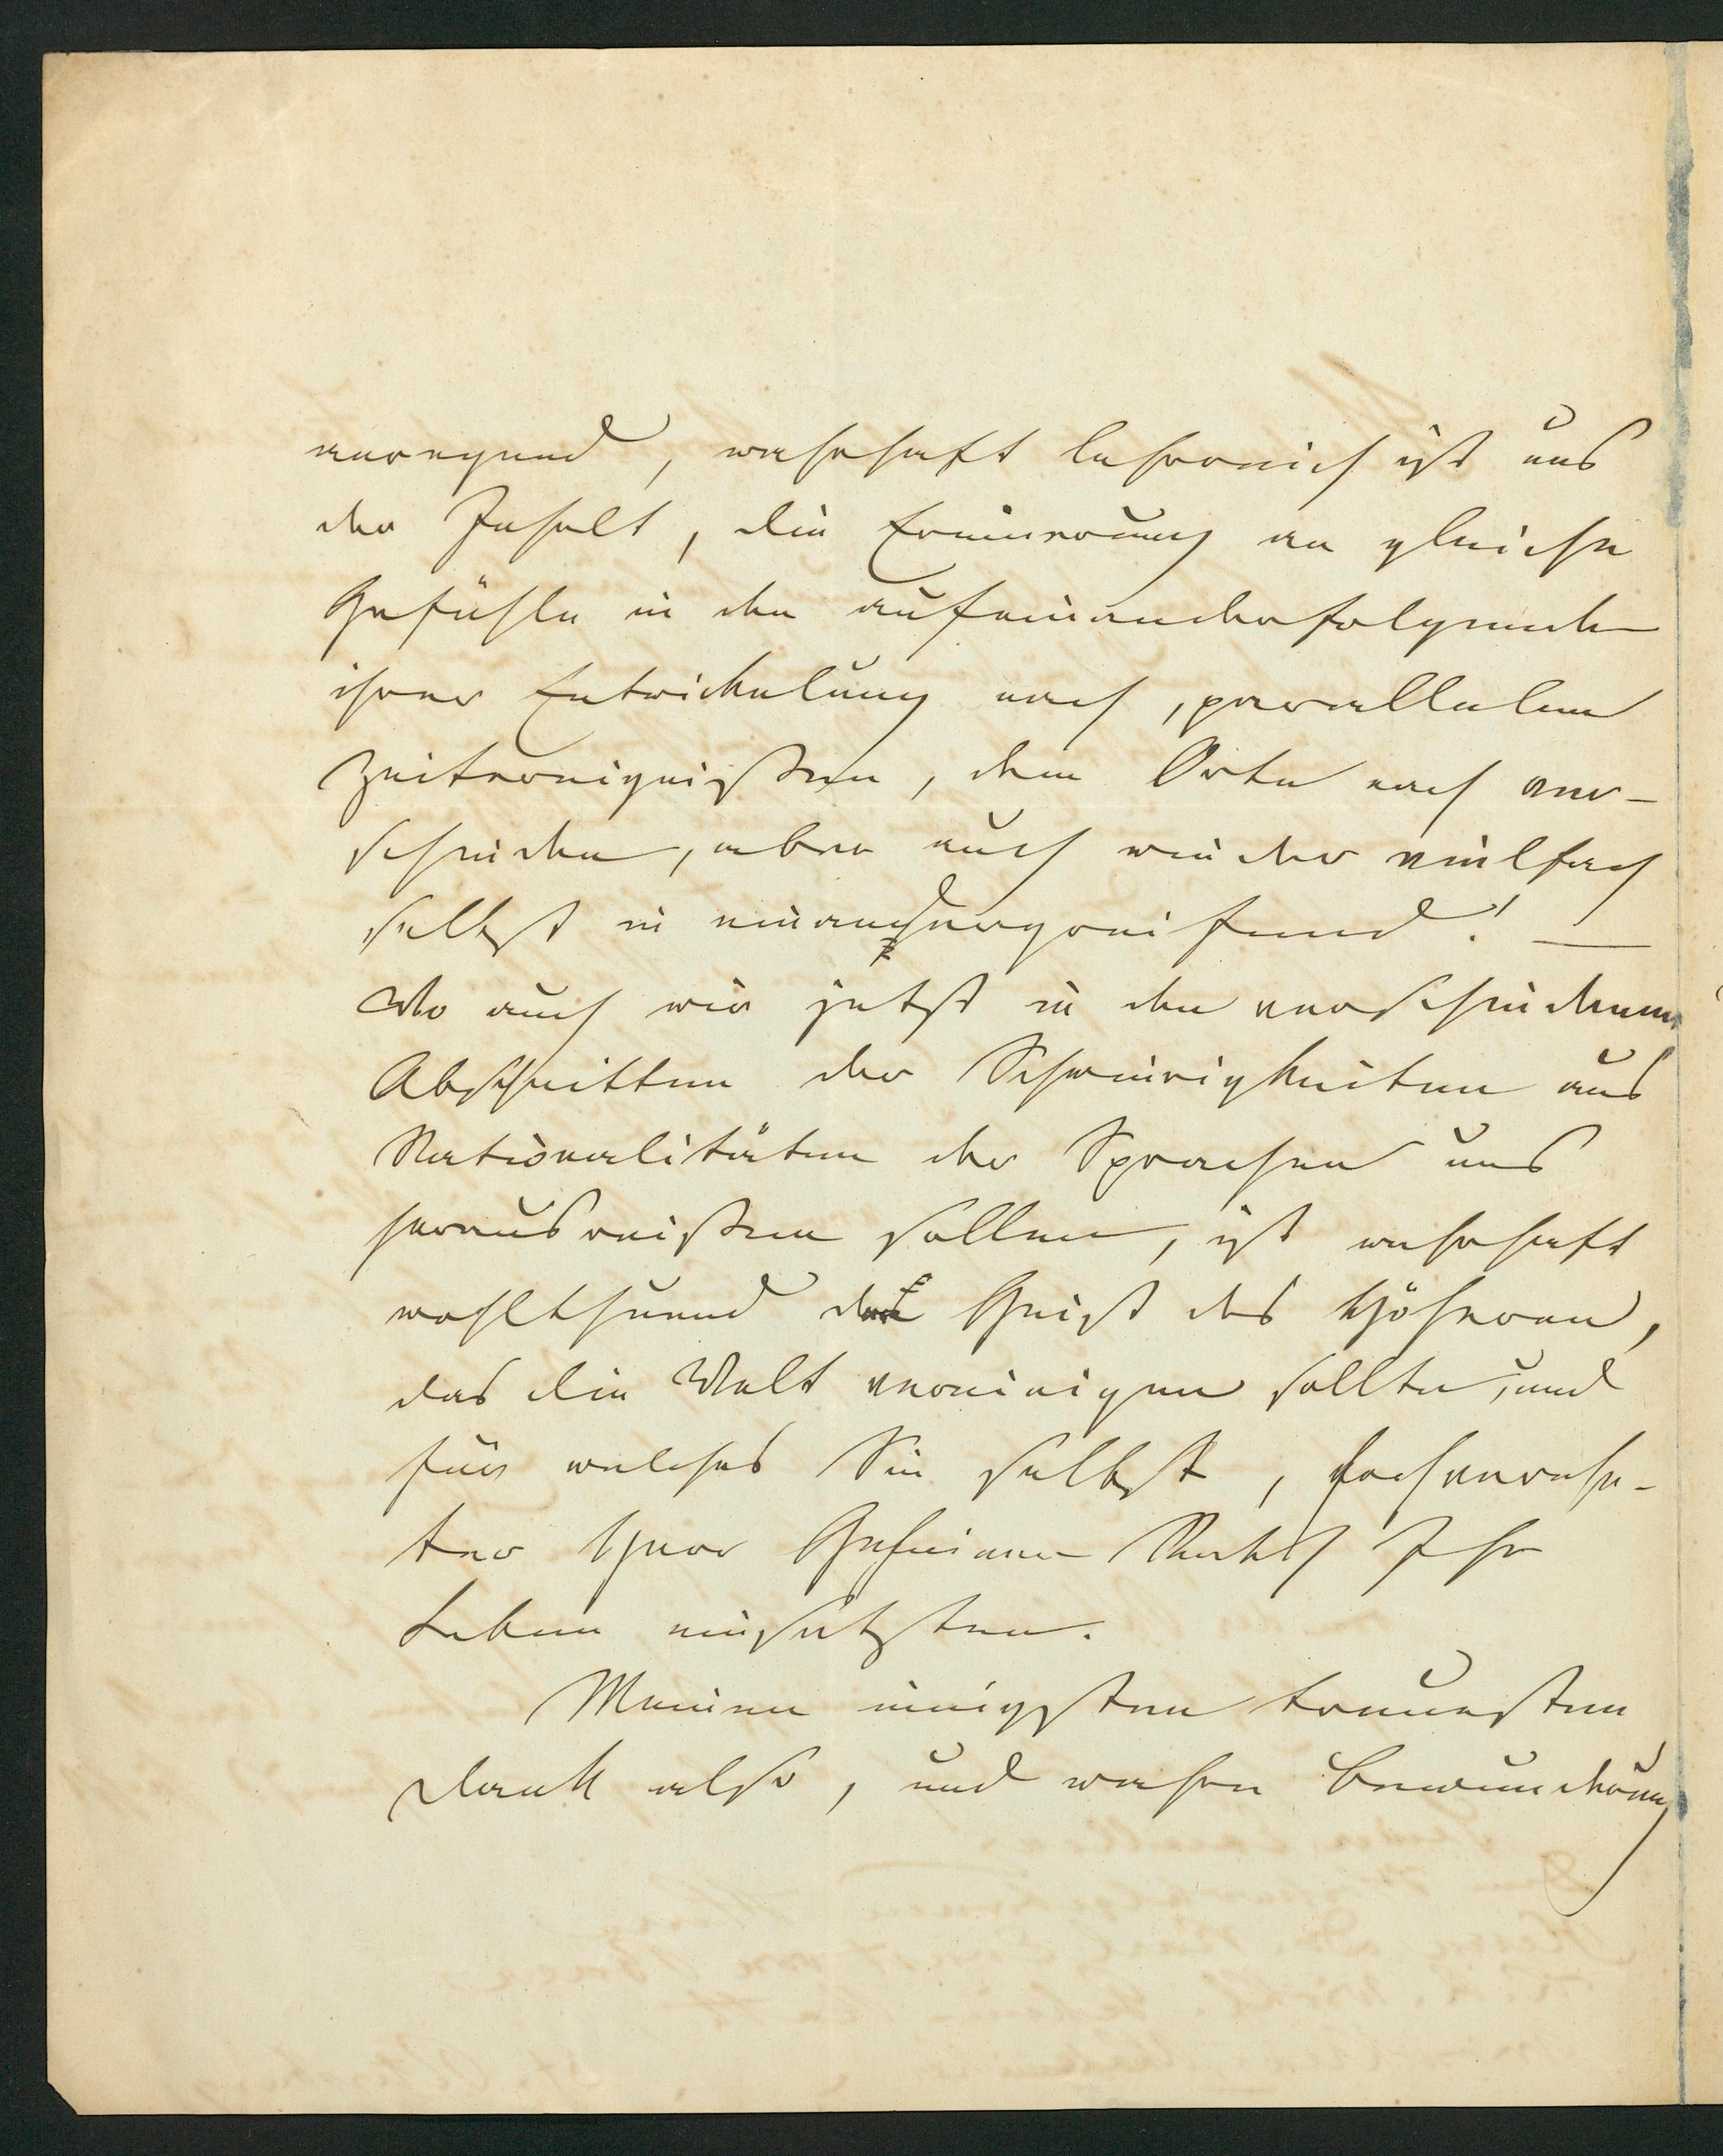 anregend, wahrhaft lehrreich ist uns
der Inhalt, die Erinnerung an gleiche
Gefühle in den aufeinanderfolgenden
ihrer Entwickelung nach, parallelen
Zeitereignißen, dem Orte nach ver-
schieden, aber auch wieder vielfach
selbst in einandergreifend! —
Wo auch wir jetzt in den verschiedenen
Abschnitten der Schwierigkeiten aus
Nationalitäten der Sprachen uns
herausreißen sollen, ist wahrhaft
wohlthuend der Geist des Höheren,
das die Welt vereinigen sollte, und
für welches Sie selbst, hochverehr-
ter Herr Geheimer Rath Ihr
Leben einsetzten.
Meinen innigsten treuesten
Dank also, und wahre Bewunderung